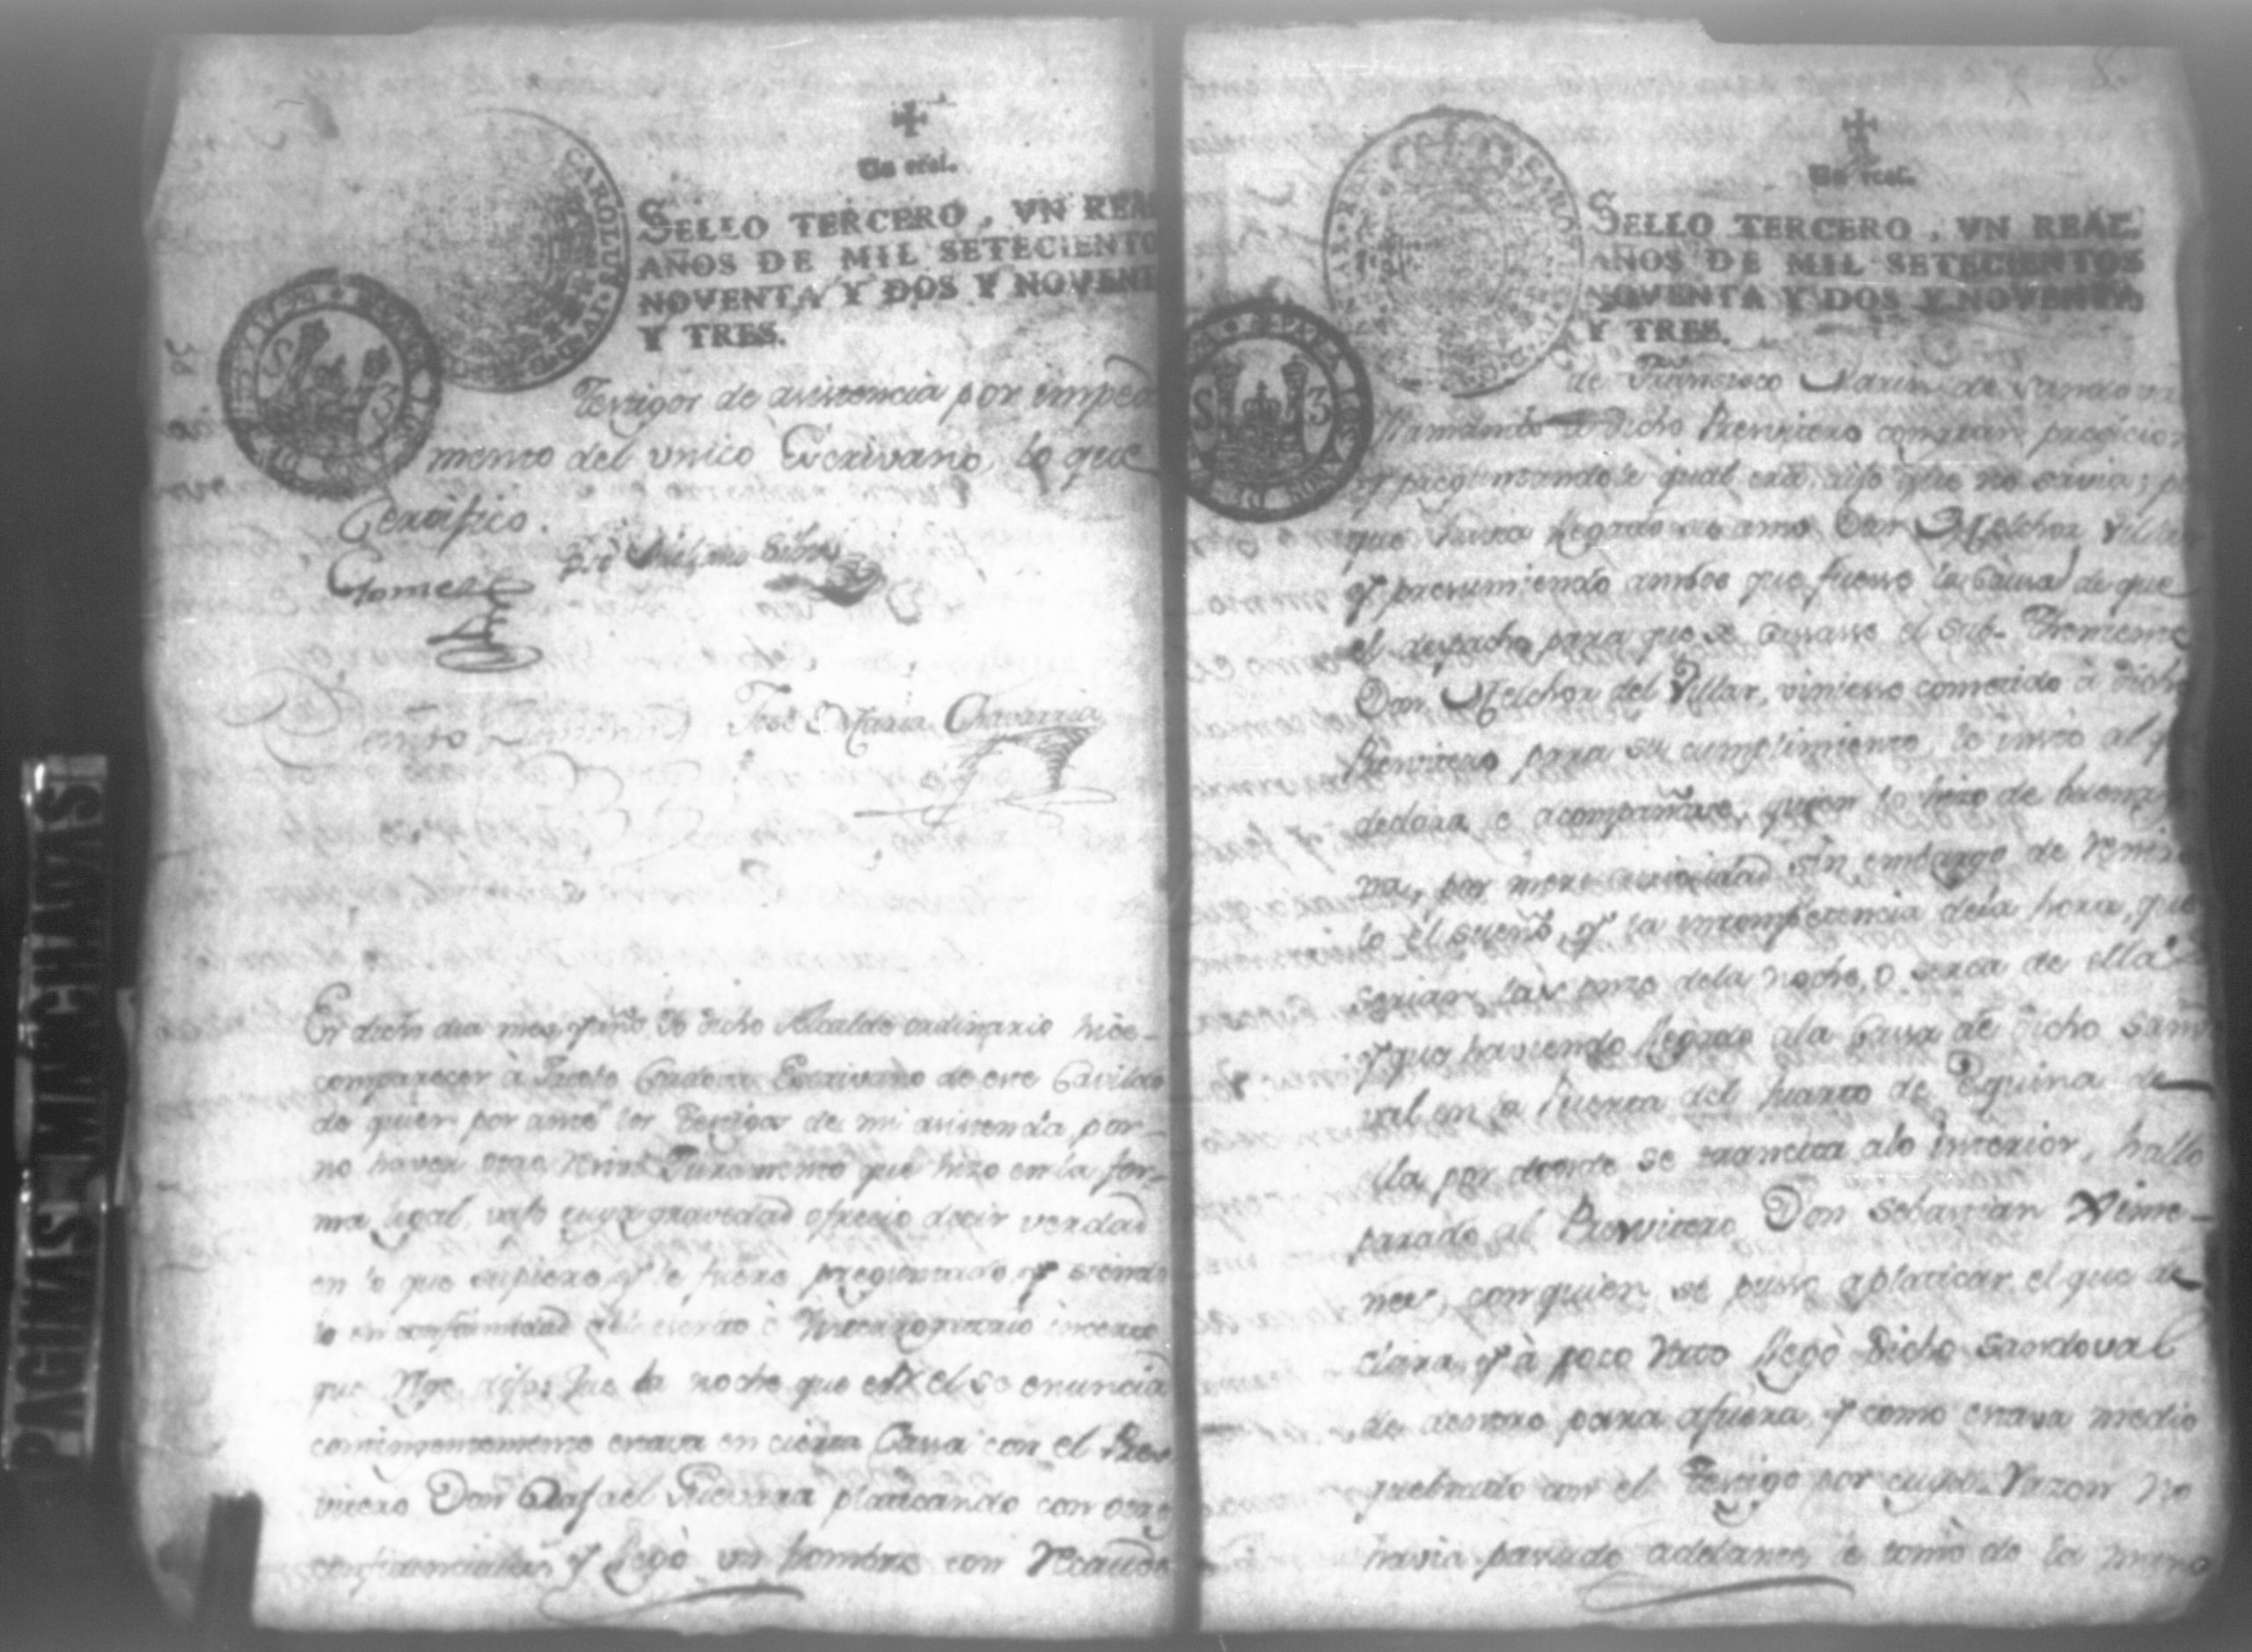 PAGINAS MANCHADAS
Un real.
SELLO TERCERO, VN REAL
AÑOS DE MIL SETECIENTO
NOVENTA Y DOS Y NOVENT
Y TRES.
CAROLUS
S 3
Testigos de asistencia por impedi
mento del vnico Escrivano, lo que
Certifico.
Gomes
José Maria Chavarria
En dicho dia mes y año, Yo dicho Alcalde ordinario hice
comparecer à Cardona Escrivano de este Cavildo
de quien por ante los Testigos de mi asistencia por
no haver otro Juramento que hizo en la for-
ma legal, vajo cuya gravedad ofrecio decir verdad
en lo que supiere, y le fuere preguntado, y siendo
lo en conformidad del escrito è Ynterrogatorio
que dijo: Que la noche que en el se enuncia
estava en cierta Cassa con el Pres
vitero Don Rafael Guevara platicando con otros
y llegò un hombre con Recaudo
Un real.
SELLO TERCERO, VN REAL.
AÑOS DE MIL SETECIENTOS
NOVENTA Y DOS Y NOVENTA
Y TRES.
S 3
de Francisco Marin de Sandoval
llamando à dicho Presvitero con precicion
y preguntandole qual era, dijo que no savia; pero
que havia llegado su amo Don Melchor Villar
y presumiendo ambos que fuesse la Caussa de que
el despacho para que se cassasse el sub-Theniente
Don Melchor del Villar, viniesse cometido à dicho
Presvitero para su cumplimiento, lo invitò al que
declara à acompañarle, quien lo hizo de buena ga
na, por mera curiosidad sin embargo de
lo el sueño, y la incompetencia dela hora, que
serian las onze dela noche, o serca de ellas
y que haviendo llegado ala Cassa de dicho Sando
val en la Puerta del quarto de Esquina de
lla por donde se trancita alo interior, hallo
parado al Presvitero Don Sebastian Xime-
nes, con quien se pusso aplaticar el que de
clara, y à poco rato llegò dicho Sandoval
de dentro para afuera, y como estava medio
quebrado con el Testigo por cuya razon no
havia passado adelante, le tomò de la mano